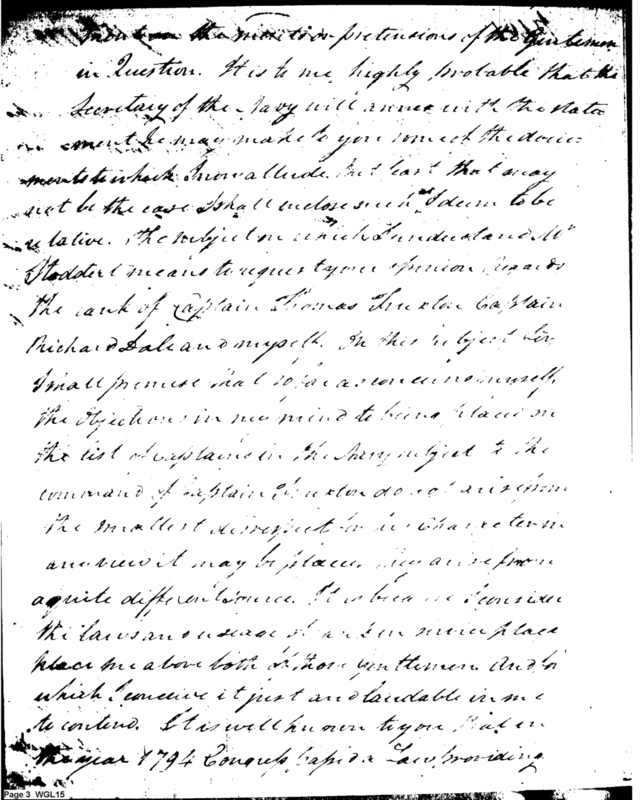 on the merit or pretensions of the Gentlemen
in Question. It is to me highly probable that the
Secretary of the Navy will annex with the state
ment he may make to you some of the docu-
ments to which I now allude. But least that may
not be the case I shall inclose such I deem to be
relative. The subject on which I understand Mr
Stoddert means to request your opinion regards
the rank of Captain Thomas Truxton Captain
Richard Dale and myself. On this subject Sir
I shall premise that so far as concerns myself,
the Objections in my mind to being placed on
the list of Captains in the Navy subject to the
command of Captain Truxton do not arise from
the smallest disrespect for his Character in
any view it may be placed. They arise from
a quite different source. It is because I consider
the laws and usage of rank in service place
place me above both of those gentlemen. And for
which I conceive it just and laudable in me
to contend. It is well known to you that in
the year 1794 Congress passed a Law providing
Page 3 WGL15